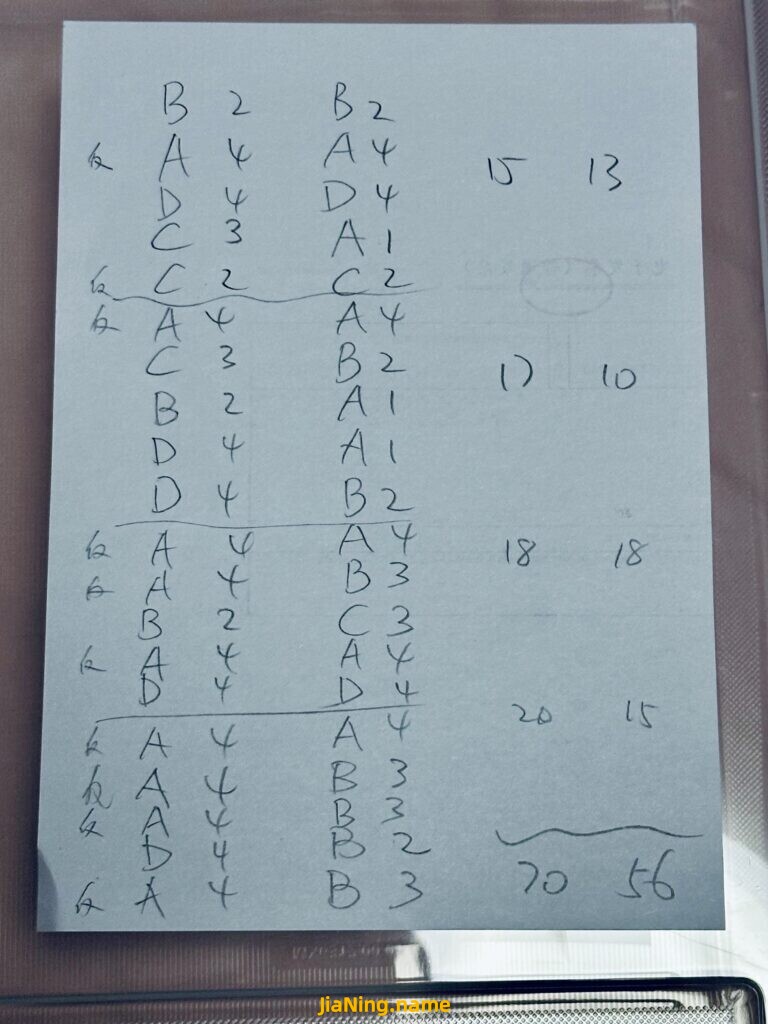 B 2 B 2
反 A 4 A 4 15 13
D 4 D 4
C 3 A 1
反 C 2 C 2
反 A 4 A 4
C 3 B 2 17 10
B 2 A 1
D 4 A 1
D 4 B 2
反 A 4 A 4 18 18
反 A 4 B 3
B 2 C 3
反 A 4 A 4
D 4 D 4
反 A 4 A 4 20 15
反 A 4 B 3
反 A 4 B 3
D 4 B 2
反 A 4 B 3 70 56
JiaNing.name